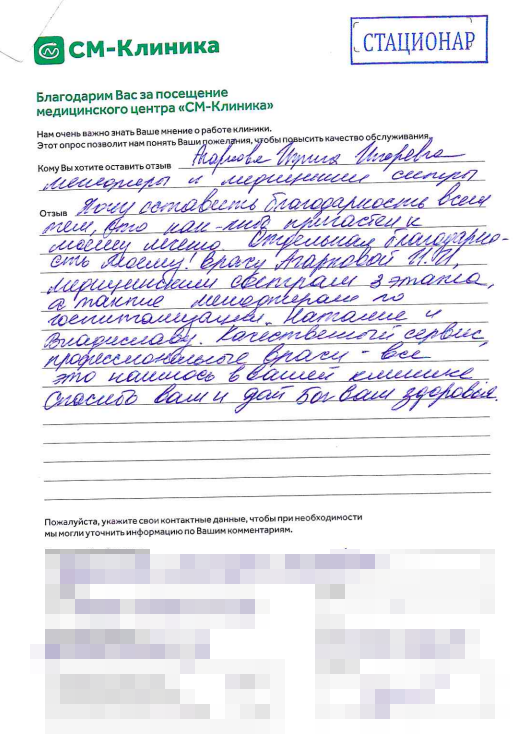 СМ-Клиника
СТАЦИОНАР
Благодарим Вас за посещение
медицинского центра «СМ-Клиника»
Нам очень важно знать Ваше мнение о работе клиники.
Этот опрос позволит нам понять Ваши пожелания, чтобы повысить качество обслуживания.
Кому Вы хотите оставить отзыв Агаркова Ирина Игоревна
менеджеры и медицинские сестры
Отзыв Хочу оставить благодарность всем
тем, кто как-либо причастен к
моему лечению. Отдельная благодарно-
сть моему врачу Агарковой И.И,
медицинским сестрам 3 этажа,
а также менеджерам по
госпитализации Наталие и
Владиславу. Качественный сервис,
профессиональные врачи - все
это нашлось в вашей клинике
Спасибо вам и дай бог вам здоровья.
Пожалуйста, укажите свои контактные данные, чтобы при необходимости
мы могли уточнить информацию по Вашим комментариям.